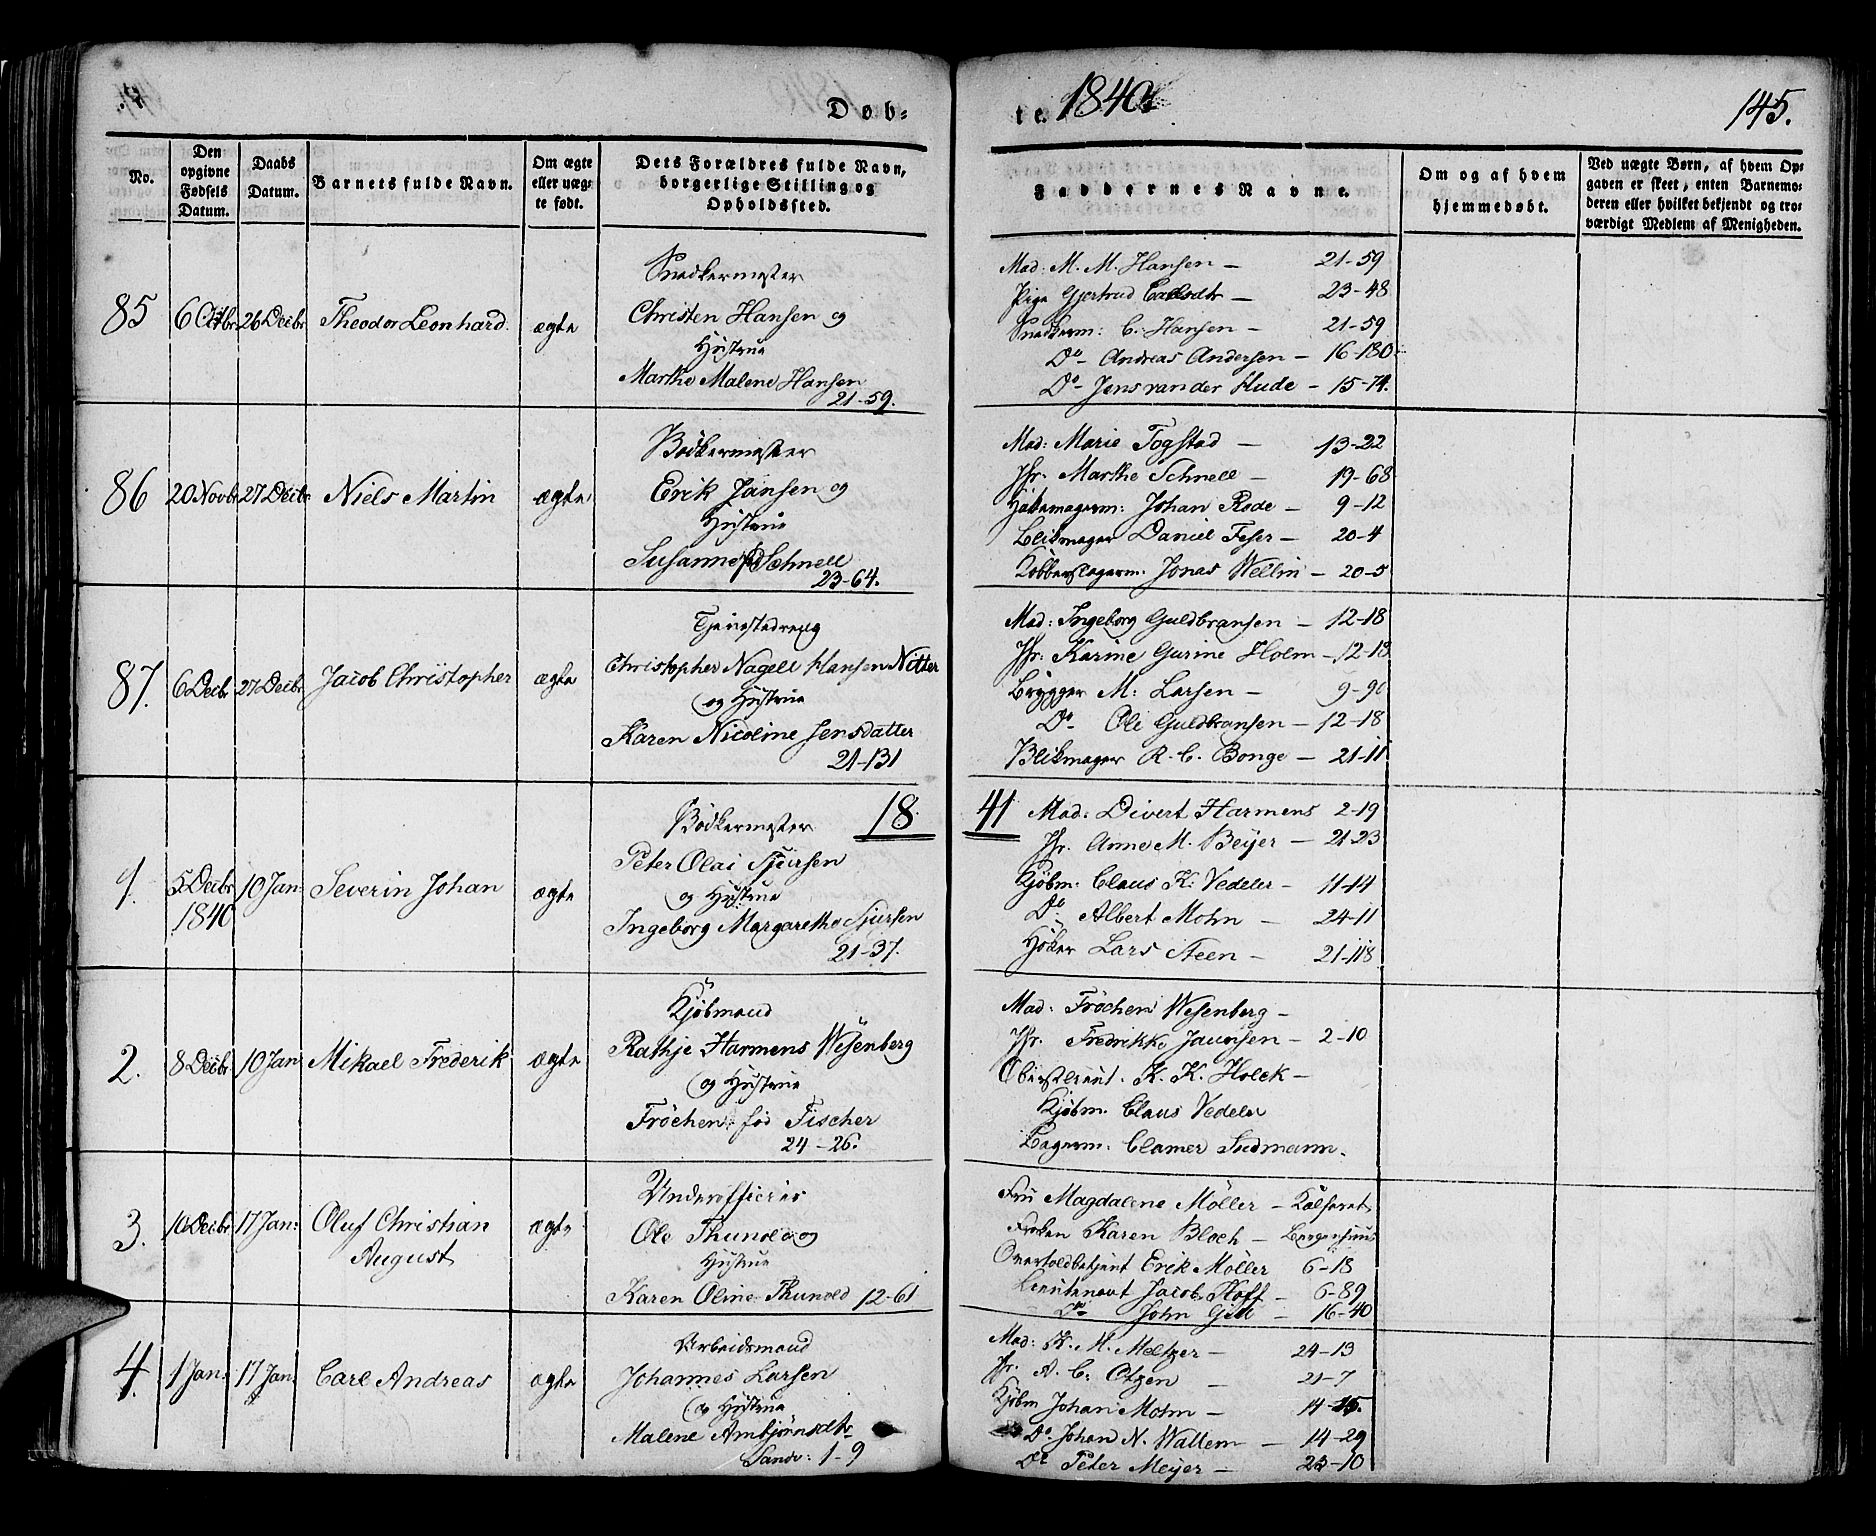 Døb-
te. 1840.
145.
No.
Den opgivne Fødsels Datum.
Daabs Datum.
Barnets fulde Navn.
Om ægte eller uægte født.
Dets Forældres fulde Navn, borgerlige Stilling og Opholdssted.
Faddernes Navne.
Om og af hvem hjemmedøbt.
Ved uægte Børn, af hvem Opgaven er skeet, enten Barnemoderen eller hvilket bekjendt og troværdigt Medlem af Menigheden.
85 6 Octbr 26 Decbr Theodor Leonhard. ægte
Snedkermester
Christen Hansen og
Hustrue
Marthe Malene Hansen
21-59.
Mad: M. M. Hansen — 21-59
Pige Gjertrud Carlsdtr — 23-48
Snedkerm: C. Hansen — 21-59
Do- Andreas Andersen — 16-180
Do- Jens van der Hude — 15-74.
86 20 Novbr 27 Decbr Niels Martin ægte
Bødkermester
Erik Jansen og
Hustrue
Susanne Schnell
23-64.
Mad: Marie Fogstad — 13-22
Jfr. Marthe Schnell — 19-68
Johan Rode — 9-12
Blikmager Daniel Feser — 20-4
Kobberslagerm. Jonas Wellin — 20-5
87. 6 Decbr 27 Decbr Jacob Christopher ægte
Tjenestedreng
Christopher Nagell Hansen Nitter
og Hustrue
Karen Nicoline Jensdatter
21-131
Mad: Ingeborg Guldbransen — 12-18
Jfr. Karine Gurine Holm — 12-18
Brygger M: Larsen — 9-90
Do- Ole Guldbransen — 12-18
Blikmager R. C. Bonge — 21-11
18 41
1. 5 Decbr 1840 10 Jan: Severin Johan ægte
Bødkermester
Peter Olai Sjursen
og Hustrue
Ingeborg Margarethe Sjursen
21-37.
Mad: Divert Harmens 2-19
Jfr. Anne M. Beyer — 21-23
Kjøbm: Claus K: Vedeler — 11-14
Do Albert Mohn — 24-11
Høker Lars Steen — 21-118
2. 8 Decbr 10 Jan Mikael Frederik ægte
Kjøbmand
Rathje Harmens Wesenberg
og Hustrue
Frøchen fød Fischer
24-26.
Mad: Frøchen Wesenberg —
Jfr. Fredrikke Jaunsen — 2-10
Oberstleint. K. K. Holck —
Kjøbm. Claus Vedeler
Bagerm: Clamer Sudmann.
3. 10 Decbr 17 Jan: Oluf Christian
August ægte
Underofficier
Ole Thunold og
Hustrue
Karen Oline Thunold 12-61
Fru Magdalene Møller —
Frøken Karen Bloch — Bergenhuus
Overtoldbetjent Erik Møller 6-18
Lieutenant Jacob Hoff — 6-89
Do- John Gill — 16-40
4. 1 Jan: 17 Jan: Carl Andreas ægte
Arbeidsmand
Johannes Larsen
og Hustrue
Malene Arnbjørnsdtr
Sandv: 1-9
Mad: K. M. Meltzer — 24-13
Jfr. A. C. Otzen — 21-7
Kjøbm Johan Mohn — 14-15.
Do. Johan N. Wallem — 14-29
Do Peter Meyer — 23-10